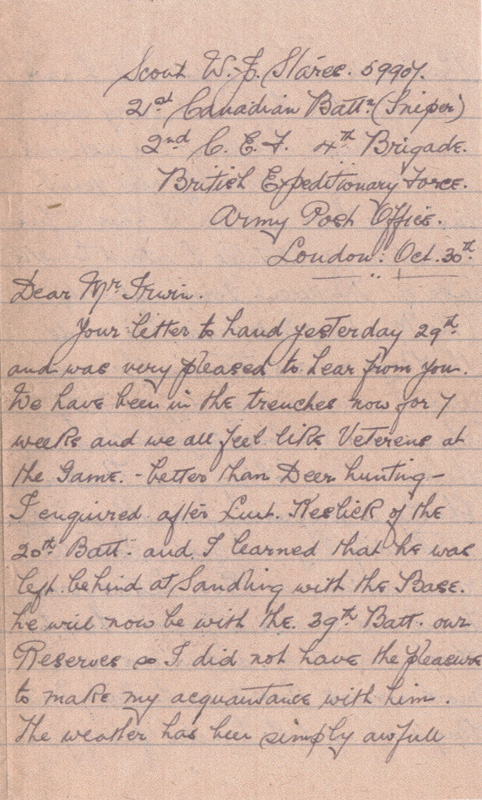 Scout W. J. Stares. 59907.
21st Canadian Battn (Sniper)
2nd C. E. F. 4th Brigade.
British Expeditionary Force.
Army Post Office.
London: Oct. 30th
Dear Mr. Irwin.
Your letter to hand yesterday 29th.
and was very pleased to hear from you.
We have been in the trenches now for 7
weeks and we all feel like Veterens at
the Game. - better than Deer hunting -
I enquired after Lieut. Keslick of the
20th Batt. and I learned that he was
left behind at Sandling with the Base.
he will now be with the 39th Batt. our
Reserves so I did not have the pleasure
to make my acquantance with him.
The weather has been simply awfull